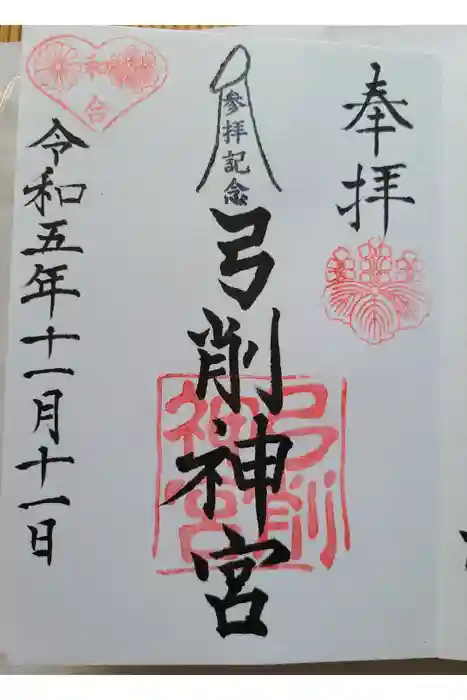 奉拝
参拝記念
弓削神宮
弓削
神宮
和
合
令和五年十一月十一日